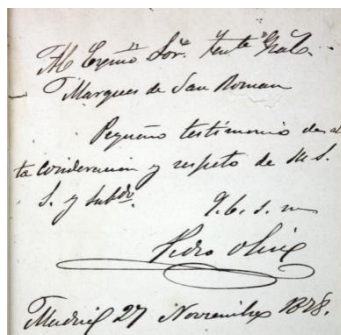 Al Exmo Sor. Tente Gral.
Marques de San Roman
Pequeño testimonio de al
ta consideracion y respeto de su S.
S. y subdo.
q. b. s. m
Pedro
Madrid 27 Noviembre 1878.